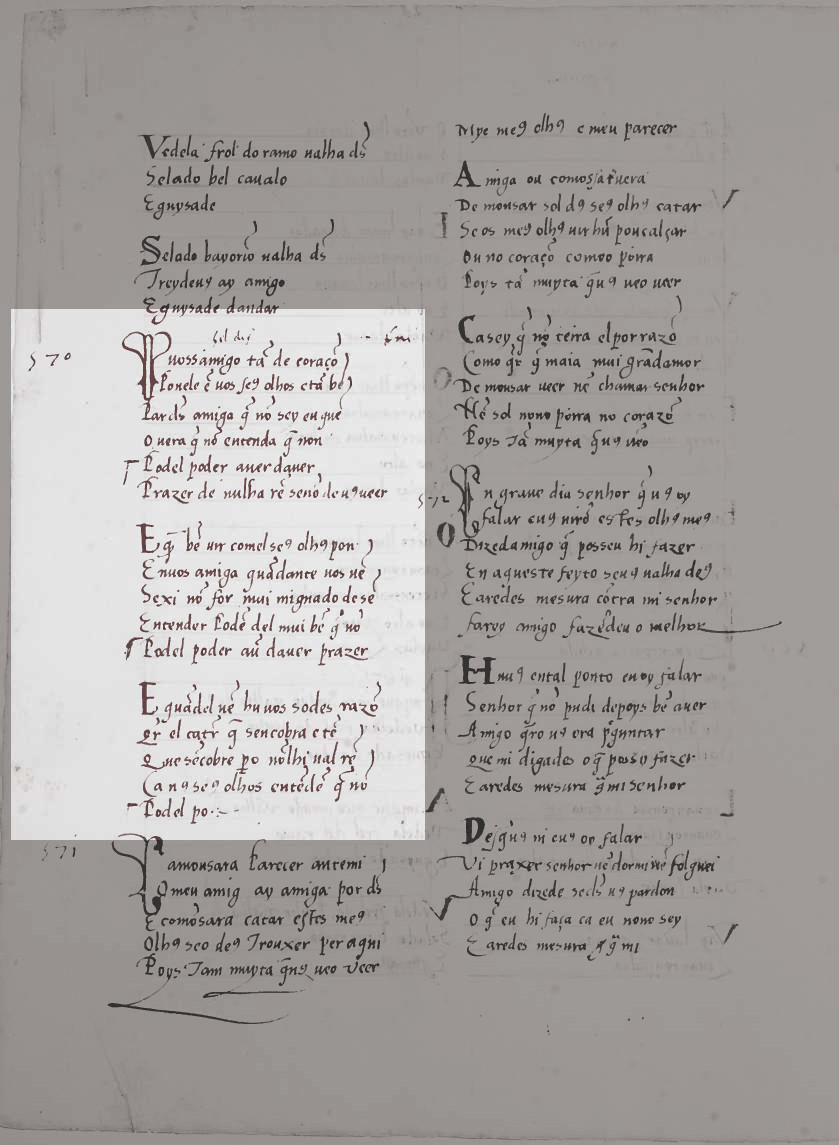 Vedela frol do ramo ualha ds̄
Selado bel caualo
Eguysade
Selado bayorio ualha ds̄
Treydeuꝰ ay amigo
Eguysade dandar
570
Pvossamigo tā de coraçō
Ponele ē uos seꝰ olhos e tā bē
Par ds̄ amiga q̄ nō sey eu quē
O uera q̄ nō entenda q̄ non
Podel poder auer dauer
Prazer de nulha rē senō de uꝰ ueer
E q̄ bē uir comel seꝰ olhꝰ pon
En uos amiga quādante uos uē
Se xi nō for mui mignado de sē
Entender podē del mui bē q̄ nō
Podel poder au dauer prazer
E quādel uē hu uos sodes razō
Qr̄ el catr̄ q̄ sencobra e tē
Que sēcobre ꝑo nōlhi ual rē
Ca nꝰ seꝰ olhos entēdē q̄ nō
Podel po
571
Par amousara parecer ante mi
O meu amig ay amiga por ds̄
E comousara catar estes meꝰ
Olhꝰ seo deꝰ trouxer per aqui
Poys tam muyta q̄ nꝰ ueo ueer
Mye meꝰ olhꝰ e meu parecer
Amiga ou comossatreuera
De mousar sol dꝰ seꝰ olhꝰ catar
Se os meꝰ olhꝰ uir hū pouc alçar
Ou no coraçō comoo porra
Poys tā muyta q̄ nꝰ ueo ueer
Ca sey q̄ nō terra el por razō
Como qr̄ q̄ maia mui grādamor
De mousar ueer nē chamar senhor
Nē sol nono porra no corazō
Poys tā muyta q̄ nꝰ ueo
572
En graue dia senhor q̄ uꝰ oy
Falar e uꝰ uirō estes olhꝰ meꝰ
Dized amigo q̄ posseu hi fazer
En aqueste feyto se uꝰ ualha deꝰ
Earedes mesura cōtra mi senhor
Farey amigo fazēdeu o melhor
Hu uꝰ en tal ponto eu oy falar
Senhor q̄ nō pudi depoys bē auer
Amigo q̄ro uꝰ ora ꝑguntar
Que mi digades o q̄ posso y fazer
Earedes mesura q̄ mi senhor
Des q̄ uꝰ ui e uꝰ oy falar
Vi prazer senhor nē dormi nē folguei
Amigo dizede se ds̄ uꝰ pardon
O q̄ eu hi faça ca eu nono sey
Earedes mesura q̄ mi